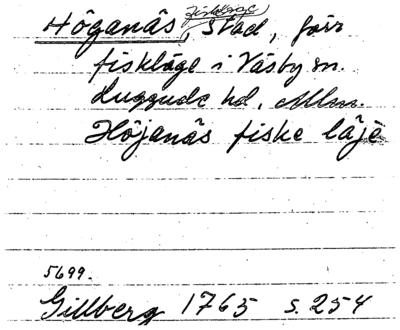 Höganäs, Stad, förr
fiskläge i Väsby sn.
Luggude hd, Mlm.
Höjanäs fiske läje
5699.
Gillberg 1765 s. 254